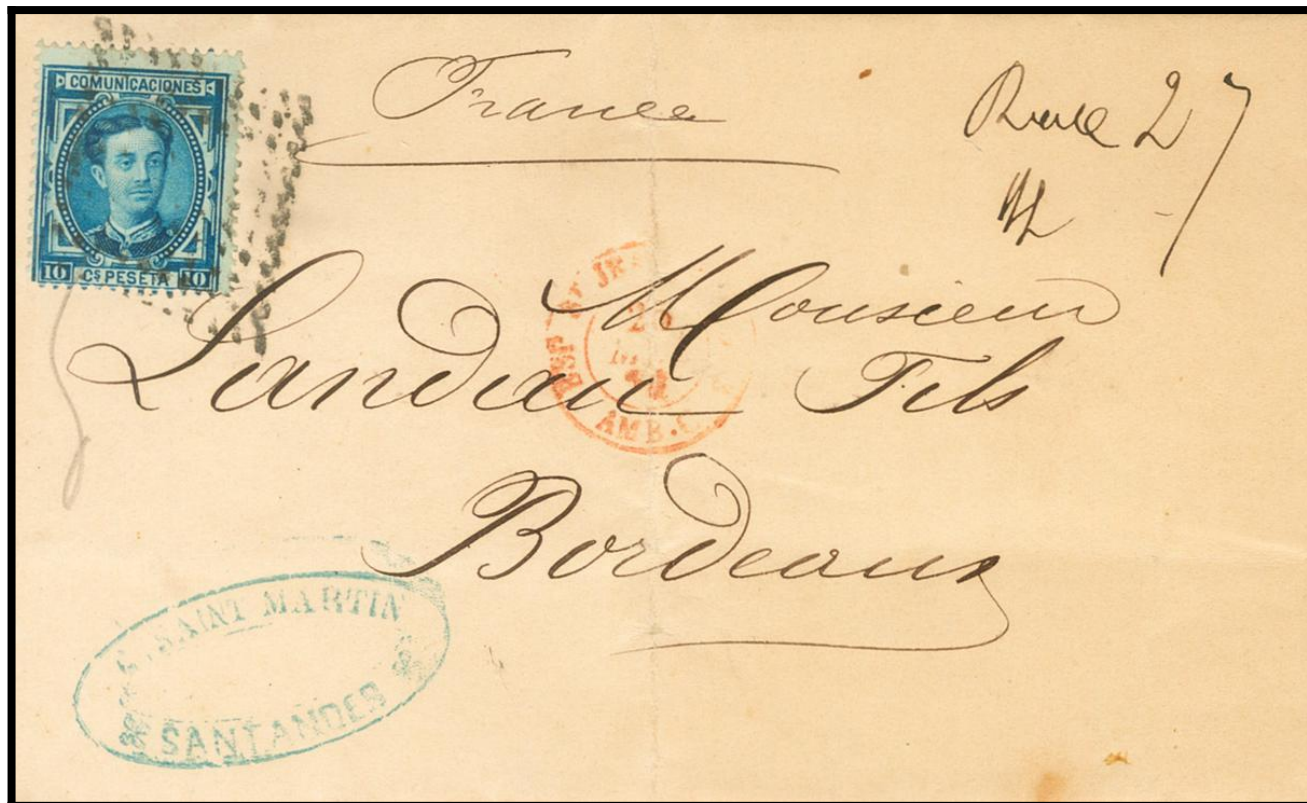 COMUNICACIONES
10 Cs PESETA 10
France
27
Monsieur
Landau Fils
Bordeaux
ESP
AMB.
SAINT MARTIN
SANTANDER